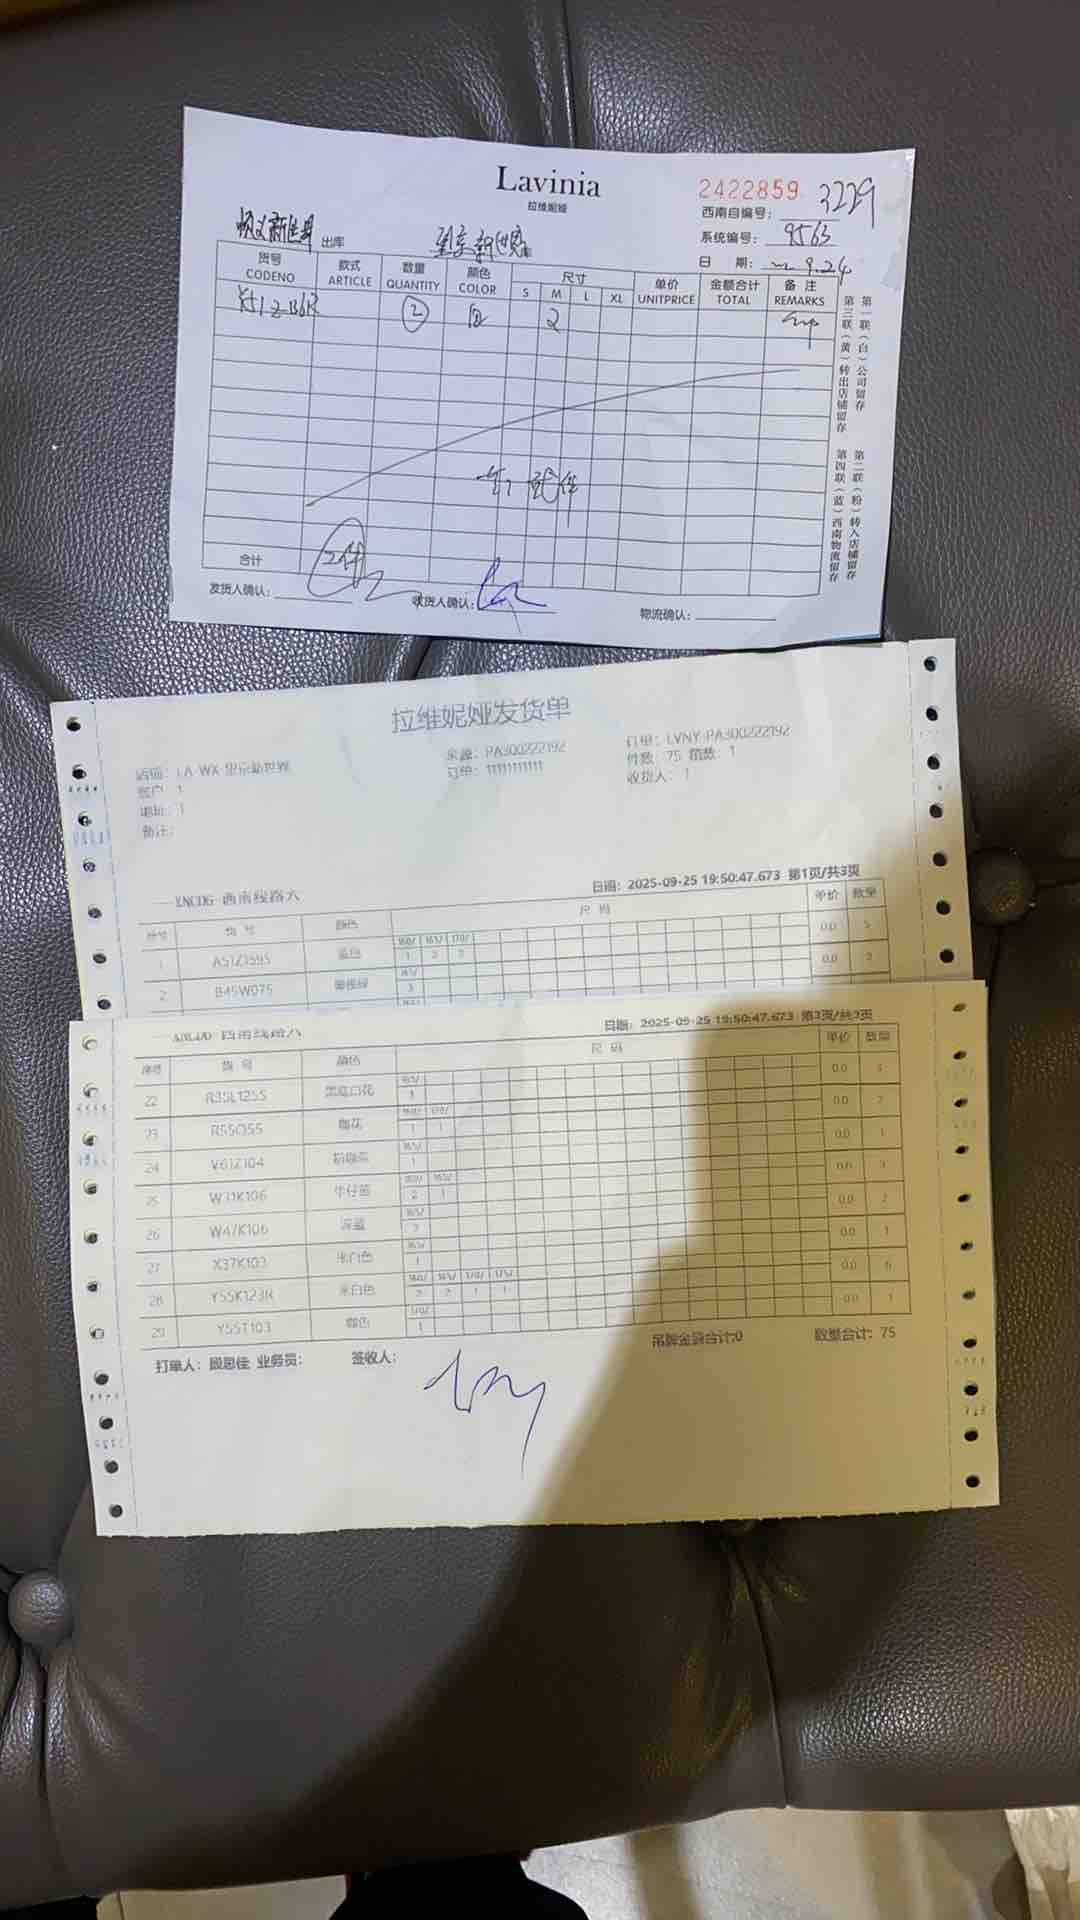 Lavinia
拉维妮娅
2422859 3229
西南自编号：
系统编号： 9563
日 期： 9.24
新世界 出库 新世界 库
货号 款式 数量 颜色 尺寸 单价 金额合计 备注
CODENO ARTICLE QUANTITY COLOR S M L XL UNITPRICE TOTAL REMARKS
② 白 2
合计 2件
发货人确认： 收货人确认： 物流确认：
第一联（白）公司留存
第二联（粉）转入店铺留存
第三联（黄）转出店铺留存
第四联（蓝）西南物流留存
拉维妮娅发货单
店铺：LA-WX 望京新世界 来源：PA300222192 订单：LVNY-PA300222192
客户：1 订单：11111111111 件数：75 箱数：1
地址：1 收货人：1
备注：
XNCD6 西南线路六 日期：2025-09-25 19:50:47.673 第1页/共3页
序号 货 号 颜色 尺 码 单价 数量
160/ 165/ 170/
1 A51Z1595 蓝色 1 2 2 0.0 5
165/
2 B45W075 橄榄绿 3 0.0 3
西南线路六 日期：2025-09-25 19:50:47.673 第3页/共3页
序号 货 号 颜色 尺 码 单价 数量
165/
22 R35L1255 黑底白花 0.0
160/ 170/
23 R55Q355 咖花 1 1 0.0 2
165/
24 V61Z104 1 0.0 1
160/ 165/
25 W31K106 牛仔蓝 2 1 0.0 3
165/
26 W47K106 深蓝 2 0.0 2
165/
27 X37K103 米白色 1 0.0 1
160/ 165/ 170/ 175/
28 Y55K123R 米白色 2 2 1 1 0.0 6
170/
29 Y55T103 咖色 1 0.0 1
吊牌金额合计:0 数量合计: 75
打单人：段思佳 业务员： 签收人：